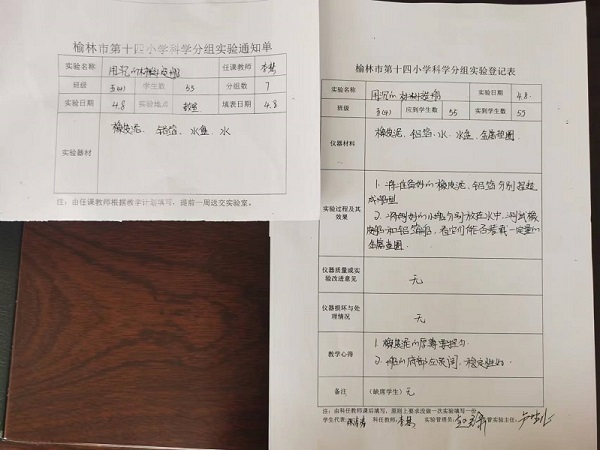 榆林市第十四小学科学分组实验通知单
实验名称 用沉的材料造船 任课教师
班级 5(4) 学生数 55 分组数 7
实验日期 4.8 实验地点 教室 填表日期 4.8
实验器材 橡皮泥、铝箔、水盆、水
注:由任课教师根据教学计划填写,提前一周送交实验室。
榆林市第十四小学科学分组实验登记表
实验名称 用沉的材料造船 实验日期 4.8.
班级 5(4) 应到学生数 55 实到学生数 55
仪器材料 橡皮泥、铝箔、水、水盆、金属垫圈
实验过程及其效果
1.将准备好的橡皮泥、铝箔分别捏捏成船型
2.将做好的小船分别放在水中,测试橡皮船和铝箔船,看它们能否承载一定量的金属垫圈。
仪器质量或实验改进意见 无
仪器损坏与处理情况 无
教学心得
1.橡皮泥的厚薄要捏匀
2.船的底部应宽阔,稳定性好
备注 (缺席学生) 无
注:由科任教师课后填写,原则上要求没做一次实验填写一份
学生代表: 科任教师: 实验管理员: 管实验主任: